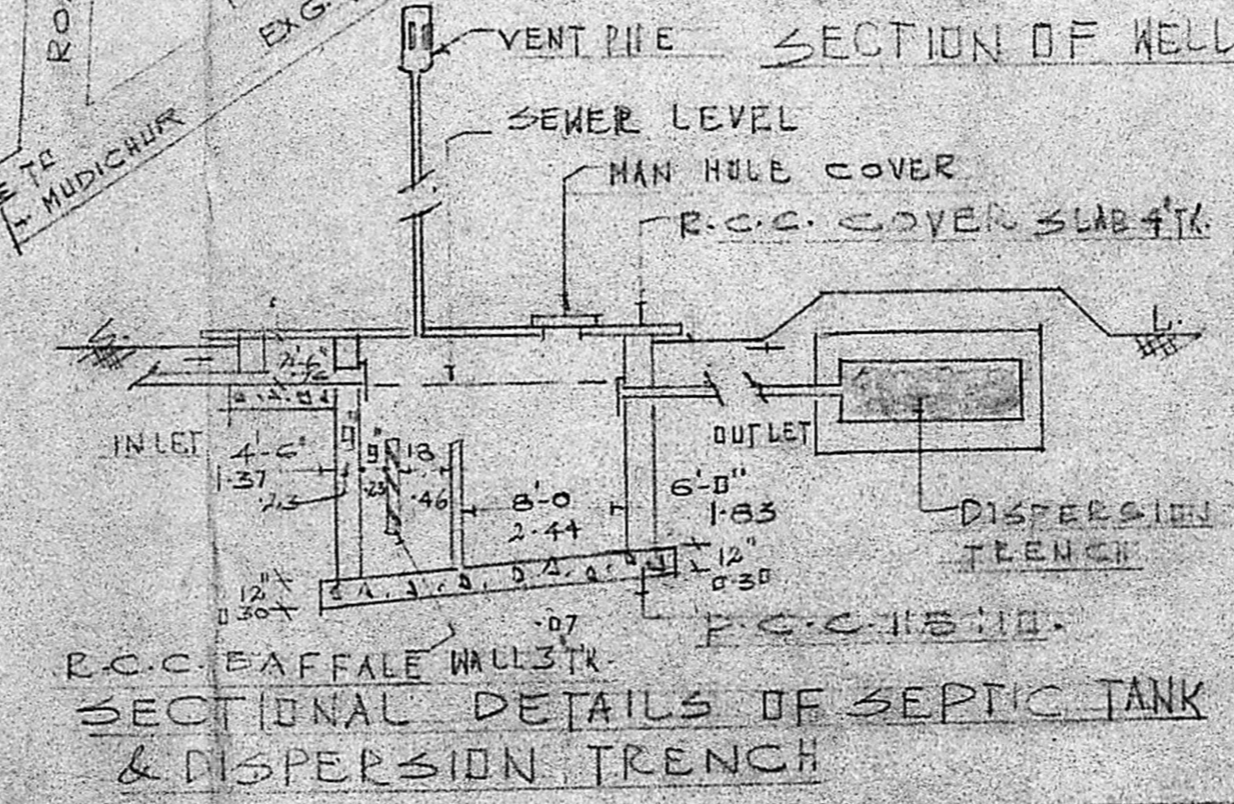 EXG.
TO
MUDICHUR
VENT PIIE
SECTION OF WELL
SEWER LEVEL
MAN HOLE COVER
R.C.C. COVER SLAB 4"TK.
L.
INLET
4'-6"
1.37
.23
9"
.23
18
.46
8'-0
2.44
OUTLET
6'-0"
1.83
12"
0.30
12"
0.30
DISPERSION
TRENCH
.07
R.C.C. BAFFALE WALL 3"TK.
SECTIONAL DETAILS OF SEPTIC TANK
& DISPERSION TRENCH